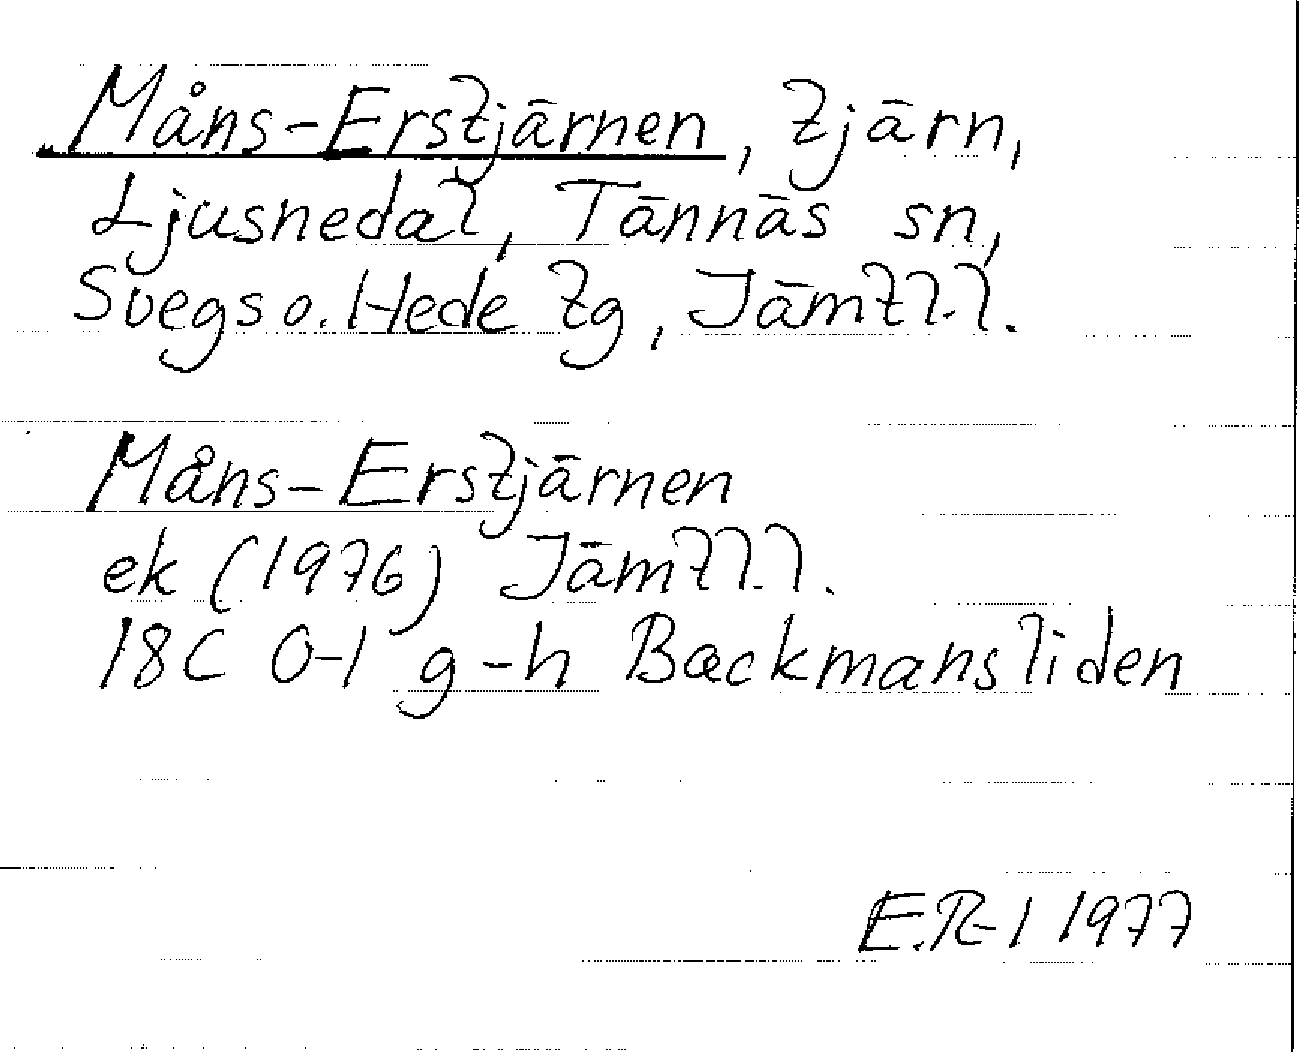 Måns-Erstjärnen, tjärn,
Ljusnedal, Tännäs sn,
Svegs o. Hede tg, Jämtl. l.
Måns-Erstjärnen
ek (1976) Jämtl. l.
18C 0-1 g-h Backmansliden
E.R-l 1977